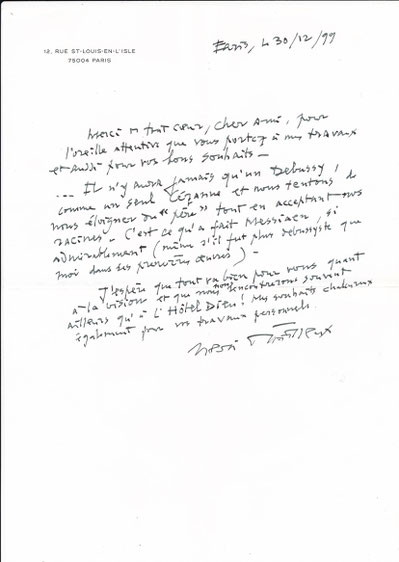 12, RUE ST-LOUIS-EN-L'ISLE
75004 PARIS
Paris, le 30/12/99
Merci de tout cœur, cher ami, pour
l'oreille attentive que vous portez à mes travaux
et aussi pour vos bons souhaits –
... Il n'y aura jamais qu'un Debussy,
comme un seul Cézanne et nous tentons de
nous éloigner du "père" tout en acceptant nos
racines. C'est ce qu'a fait Messiaen, si
admirablement (même s'il fut plus debussyste que
moi dans ses premières œuvres) –
J'espère que tout va bien pour vous quant
à la vision et que nous nous rencontrerons souvent
ailleurs qu'à l'Hôtel Dieu! Mes souhaits chaleureux
également pour vos travaux personnels.
Henri Dutilleux